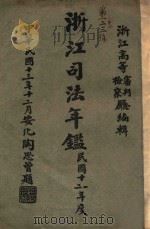 浙江高等審判檢察廳編輯
浙江司法年鑑
民國十一年度
民國十三年十二月安化陶思曾題